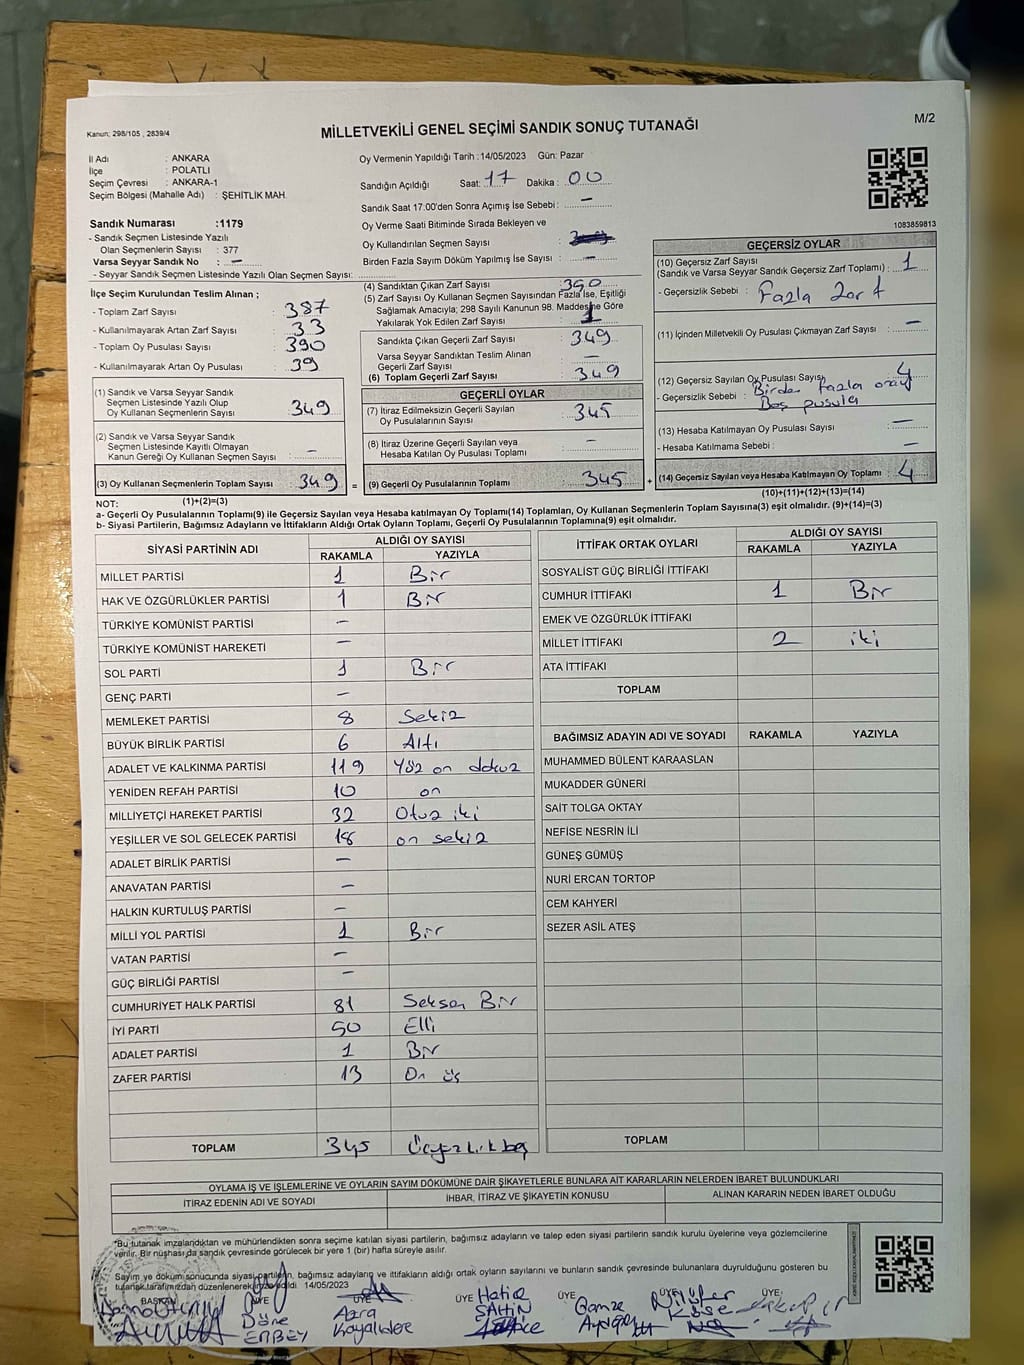 M/2
Kanun: 298/105 , 2839/4
MİLLETVEKİLİ GENEL SEÇİMİ SANDIK SONUÇ TUTANAĞI
İl Adı : ANKARA
İlçe : POLATLI
Seçim Çevresi : ANKARA-1
Seçim Bölgesi (Mahalle Adı) : ŞEHİTLİK MAH.
Oy Vermenin Yapıldığı Tarih :14/05/2023 Gün: Pazar
Sandığın Açıldığı Saat: 17 Dakika : 00
Sandık Saat 17.00'den Sonra Açımış İse Sebebi : -
Oy Verme Saati Bitiminde Sırada Bekleyen ve
Oy Kullandırılan Seçmen Sayısı
Birden Fazla Sayım Döküm Yapılmış İse Sayısı : -
1083859813
Sandık Numarası :1179
- Sandık Seçmen Listesinde Yazılı
Olan Seçmenlerin Sayısı : 377
Varsa Seyyar Sandık No : -
- Seyyar Sandık Seçmen Listesinde Yazılı Olan Seçmen Sayısı:
İlçe Seçim Kurulundan Teslim Alınan ;
- Toplam Zarf Sayısı : 387
- Kullanılmayarak Artan Zarf Sayısı : 33
- Toplam Oy Pusulası Sayısı : 390
- Kullanılmayarak Artan Oy Pusulası : 39
(1) Sandık ve Varsa Seyyar Sandık
Seçmen Listesinde Yazılı Olup
Oy Kullanan Seçmenlerin Sayısı : 349
(2) Sandık ve Varsa Seyyar Sandık
Seçmen Listesinde Kayıtlı Olmayan
Kanun Gereği Oy Kullanan Seçmen Sayısı : -
(3) Oy Kullanan Seçmenlerin Toplam Sayısı : 349
(1)+(2)=(3)
(4) Sandıktan Çıkan Zarf Sayısı : 350
(5) Zarf Sayısı Oy Kullanan Seçmen Sayısından Fazla İse, Eşitliği
Sağlamak Amacıyla; 298 Sayılı Kanunun 98. Maddesine Göre
Yakılarak Yok Edilen Zarf Sayısı : 1
Sandıkta Çıkan Geçerli Zarf Sayısı : 349
Varsa Seyyar Sandıktan Teslim Alınan
Geçerli Zarf Sayısı : -
(6) Toplam Geçerli Zarf Sayısı : 349
GEÇERLİ OYLAR
(7) İtiraz Edilmeksizin Geçerli Sayılan
Oy Pusulalarının Sayısı : 345
(8) İtiraz Üzerine Geçerli Sayılan veya
Hesaba Katılan Oy Pusulası Toplamı : -
= (9) Geçerli Oy Pusulalarının Toplamı : 345
GEÇERSİZ OYLAR
(10) Geçersiz Zarf Sayısı
(Sandık ve Varsa Seyyar Sandık Geçersiz Zarf Toplamı) : 1
- Geçersizlik Sebebi : Fazla Zarf
(11) İçinden Milletvekili Oy Pusulası Çıkmayan Zarf Sayısı : -
(12) Geçersiz Sayılan Oy Pusulası Sayısı 4
- Geçersizlik Sebebi : Birden fazla onay
Boş pusula
(13) Hesaba Katılmayan Oy Pusulası Sayısı : -
- Hesaba Katılmama Sebebi : -
+ (14) Geçersiz Sayılan veya Hesaba Katılmayan Oy Toplamı : 4
(10)+(11)+(12)+(13)=(14)
NOT:
a- Geçerli Oy Pusulalarının Toplamı(9) ile Geçersiz Sayılan veya Hesaba katılmayan Oy Toplamı(14) Toplamları, Oy Kullanan Seçmenlerin Toplam Sayısına(3) eşit olmalıdır. (9)+(14)=(3)
b- Siyasi Partilerin, Bağımsız Adayların ve İttifakların Aldığı Ortak Oyların Toplamı, Geçerli Oy Pusulalarının Toplamına(9) eşit olmalıdır.
SİYASİ PARTİNİN ADI ALDIĞI OY SAYISI
RAKAMLA YAZIYLA
MİLLET PARTİSİ 1 Bir
HAK VE ÖZGÜRLÜKLER PARTİSİ 1 Bir
TÜRKİYE KOMÜNİST PARTİSİ -
TÜRKİYE KOMÜNİST HAREKETİ -
SOL PARTİ 1 Bir
GENÇ PARTİ -
MEMLEKET PARTİSİ 8 Sekiz
BÜYÜK BİRLİK PARTİSİ 6 Altı
ADALET VE KALKINMA PARTİSİ 119 Yüz on dokuz
YENİDEN REFAH PARTİSİ 10 on
MİLLİYETÇİ HAREKET PARTİSİ 32 Otuz iki
YEŞİLLER VE SOL GELECEK PARTİSİ 18 on sekiz
ADALET BİRLİK PARTİSİ -
ANAVATAN PARTİSİ -
HALKIN KURTULUŞ PARTİSİ -
MİLLİ YOL PARTİSİ 1 Bir
VATAN PARTİSİ -
GÜÇ BİRLİĞİ PARTİSİ -
CUMHURİYET HALK PARTİSİ 81 Seksen Bir
İYİ PARTİ 50 Elli
ADALET PARTİSİ 1 Bir
ZAFER PARTİSİ 13 On üç
TOPLAM 345 Üçyüzkırkbeş
İTTİFAK ORTAK OYLARI ALDIĞI OY SAYISI
RAKAMLA YAZIYLA
SOSYALİST GÜÇ BİRLİĞİ İTTİFAKI
CUMHUR İTTİFAKI 1 Bir
EMEK VE ÖZGÜRLÜK İTTİFAKI
MİLLET İTTİFAKI 2 iki
ATA İTTİFAKI
TOPLAM
BAĞIMSIZ ADAYIN ADI VE SOYADI RAKAMLA YAZIYLA
MUHAMMED BÜLENT KARAASLAN
MUKADDER GÜNERİ
SAİT TOLGA OKTAY
NEFİSE NESRİN İLİ
GÜNEŞ GÜMÜŞ
NURİ ERCAN TORTOP
CEM KAHYERİ
SEZER ASİL ATEŞ
TOPLAM
OYLAMA İŞ VE İŞLEMLERİNE VE OYLARIN SAYIM DÖKÜMÜNE DAİR ŞİKAYETLERLE BUNLARA AİT KARARLARIN NELERDEN İBARET BULUNDUKLARI
İTİRAZ EDENİN ADI VE SOYADI İHBAR, İTİRAZ VE ŞİKAYETİN KONUSU ALINAN KARARIN NEDEN İBARET OLDUĞU
*Bu tutanak imzalandıktan ve mühürlendikten sonra seçime katılan siyasi partilerin, bağımsız adayların ve talep eden siyasi partilerin sandık kurulu üyelerine veya gözlemcilerine
verilir. Bir nüshası da sandık çevresinde görülecek bir yere 1 (bir) hafta süreyle asılır.
Sayım ve döküm sonucunda siyasi partilerin, bağımsız adayların ve ittifakların aldığı ortak oyların sayısını ve bunların sandık çevresinde bulunanlara duyrulduğunu gösteren bu
tutanak tarafımızdan düzenlenerek imza edildi 14/05/2023
BAŞKAN ÜYE ÜYE ÜYE ÜYE ÜYE ÜYE
Döne Azra Hatice Gamze Nilüfer
ERBEY Kayalıdere ŞAHİN Köse